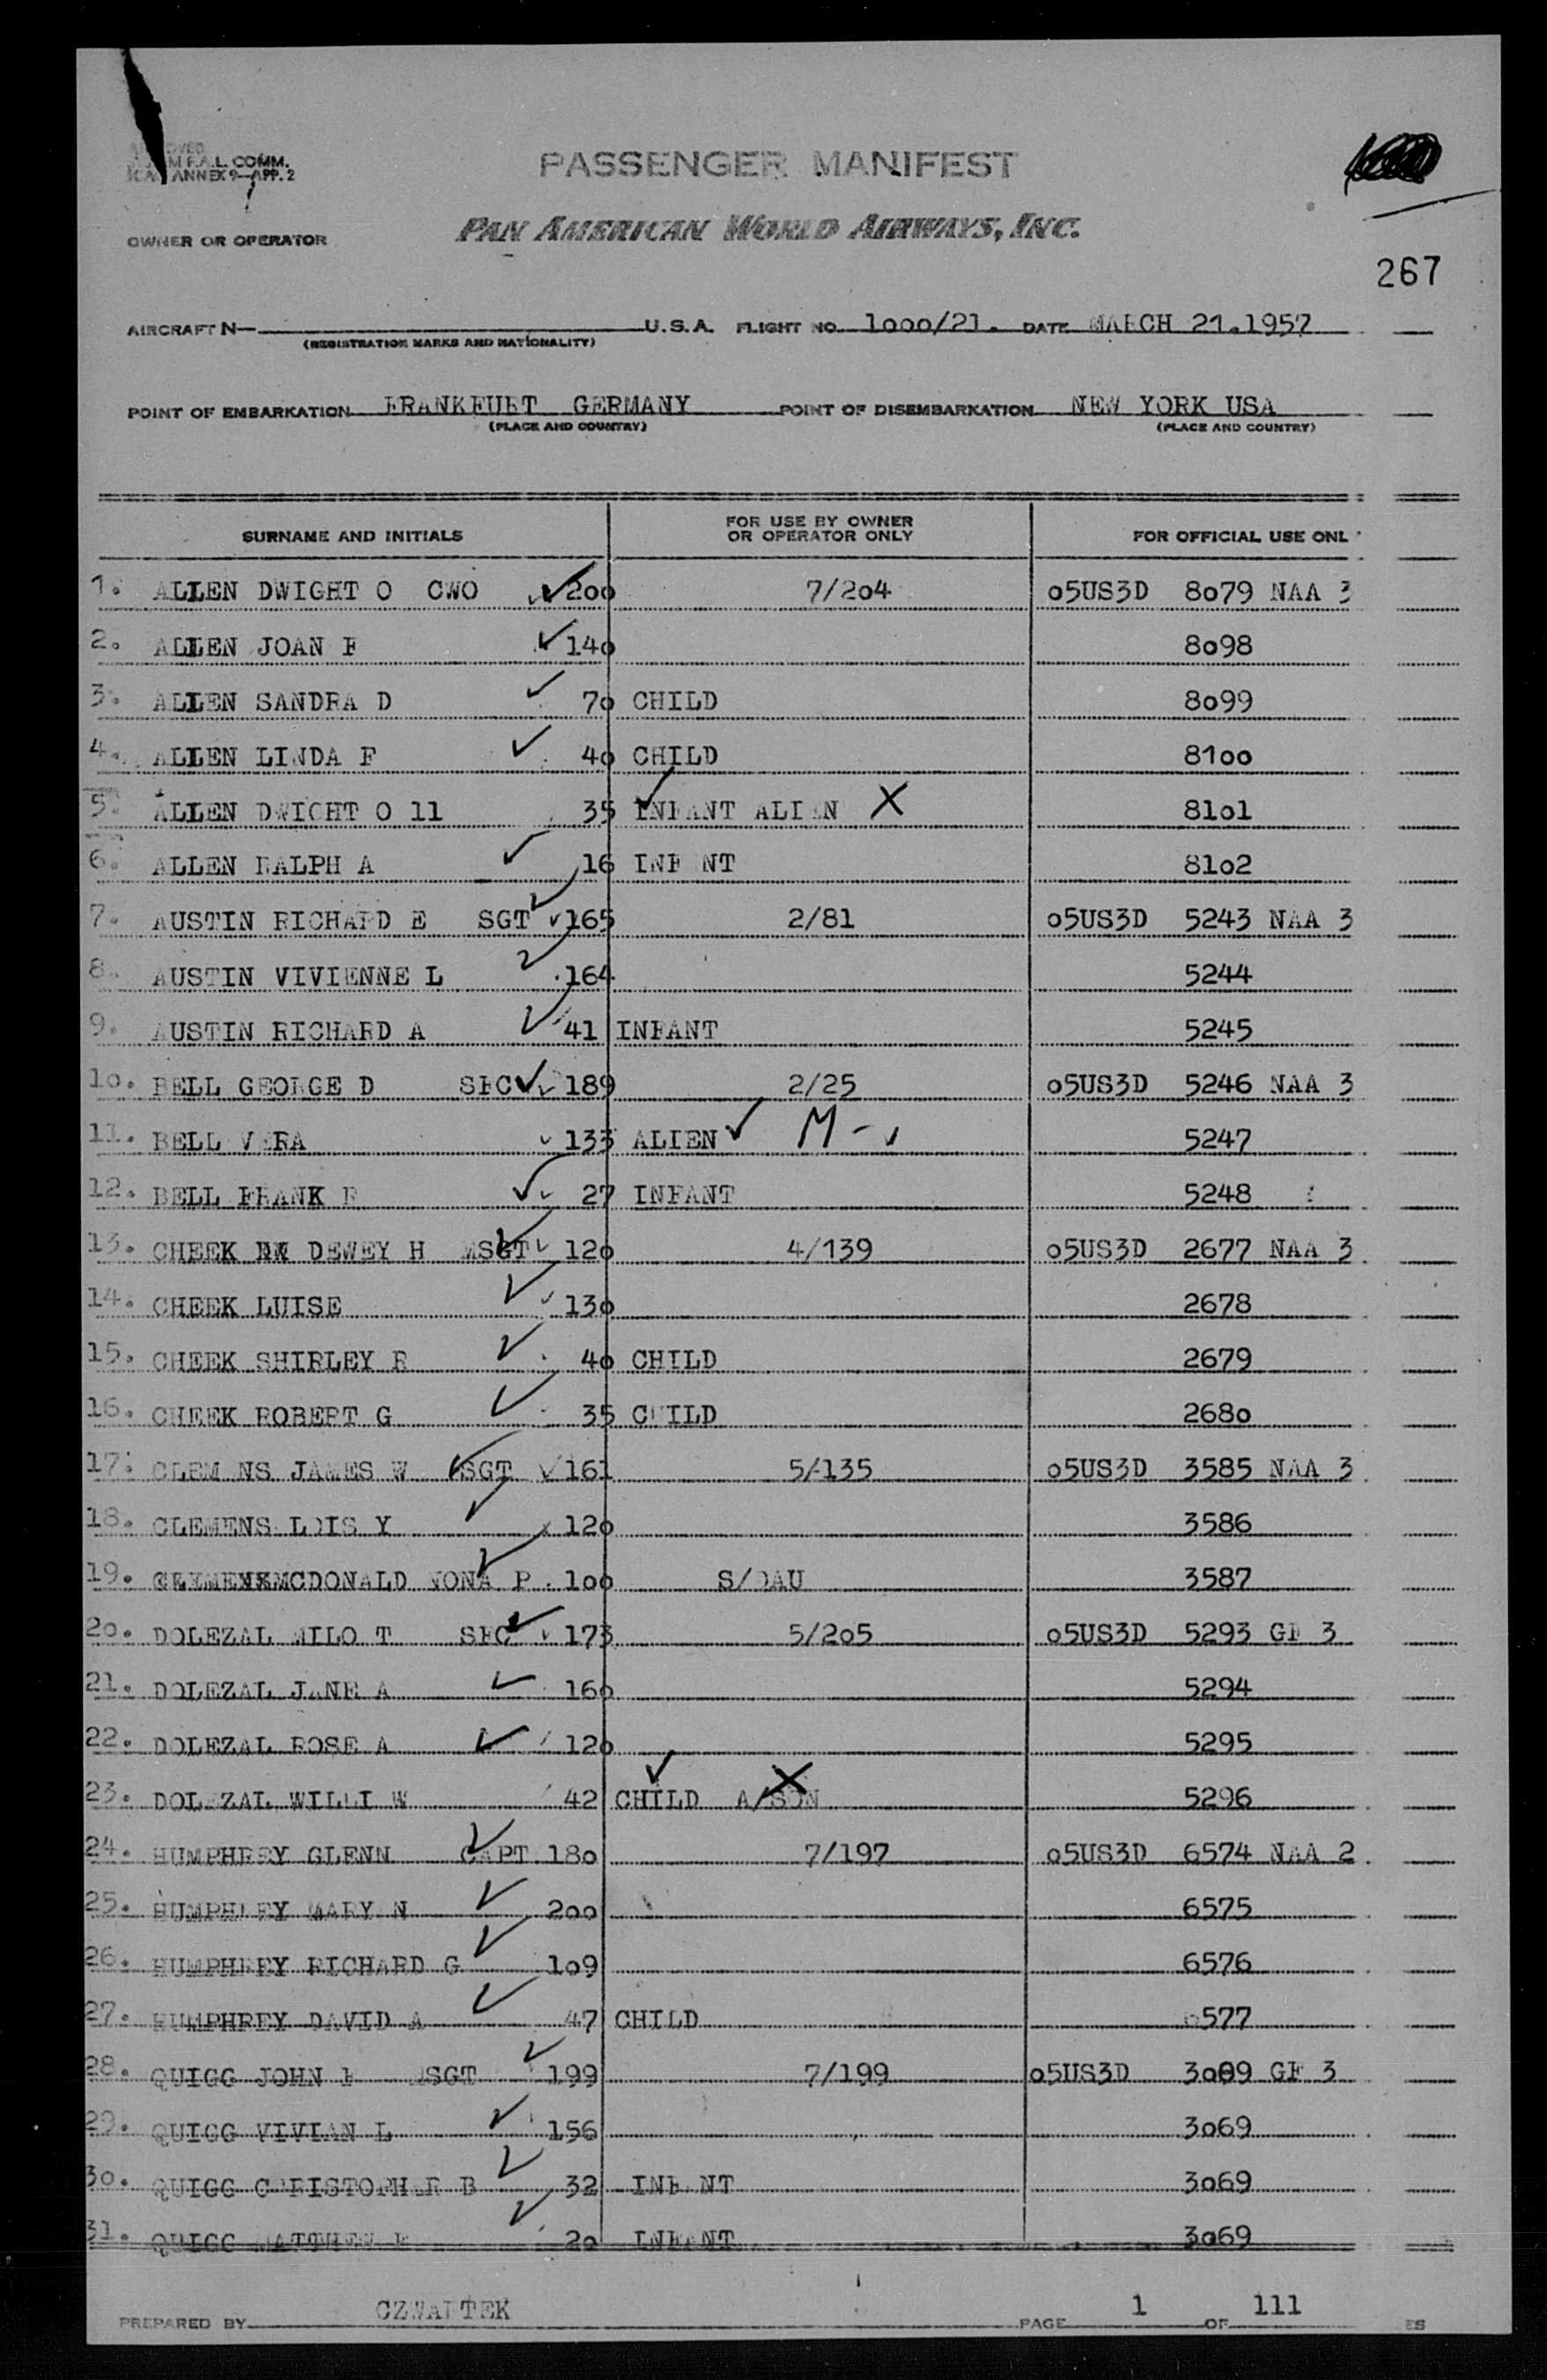 M F.A.L. COMM.
ANNEX 9—APP. 2
PASSENGER MANIFEST
OWNER OR OPERATOR PAN AMERICAN WORLD AIRWAYS, INC.
267
AIRCRAFT N— U.S.A. FLIGHT NO. 1000/21. DATE MARCH 21.1957
(REGISTRATION MARKS AND NATIONALITY)
POINT OF EMBARKATION FRANKFURT GERMANY POINT OF DISEMBARKATION NEW YORK USA
(PLACE AND COUNTRY) (PLACE AND COUNTRY)
SURNAME AND INITIALS FOR USE BY OWNER OR OPERATOR ONLY FOR OFFICIAL USE ONL
1. ALLEN DWIGHT O CWO 200 7/204 05US3D 8079 NAA 3
2. ALLEN JOAN F 140 8098
3. ALLEN SANDRA D 70 CHILD 8099
4. ALLEN LINDA F 40 CHILD 8100
5. ALLEN DWIGHT O 11 35 INFANT ALIEN X 8101
6. ALLEN RALPH A 16 INFANT 8102
7. AUSTIN RICHARD E SGT 165 2/81 05US3D 5243 NAA 3
8. AUSTIN VIVIENNE L 164 5244
9. AUSTIN RICHARD A 41 INFANT 5245
10. BELL GEORGE D SFC 189 2/25 05US3D 5246 NAA 3
11. BELL VERA 133 ALIEN M - 5247
12. BELL FRANK R 27 INFANT 5248
13. CHEEK DEWEY H MSGT 120 4/139 05US3D 2677 NAA 3
14. CHEEK LUISE 130 2678
15. CHEEK SHIRLEY R 40 CHILD 2679
16. CHEEK ROBERT G 35 CHILD 2680
17. CLEMENS JAMES W SGT 161 5/135 05US3D 3585 NAA 3
18. CLEMENS LOIS Y 120 3586
19. MCDONALD NONA P 100 S/DAU 3587
20. DOLEZAL MILO T SFC 173 5/205 05US3D 5293 GF 3
21. DOLEZAL JANE A 160 5294
22. DOLEZAL ROSE A 120 5295
23. DOLEZAL WILLI W 42 CHILD A/SON X 5296
24. HUMPHREY GLENN CAPT 180 7/197 05US3D 6574 NAA 2
25. HUMPHREY MARY N 200 6575
26. HUMPHREY RICHARD G 109 6576
27. HUMPHREY DAVID A 47 CHILD 6577
28. QUIGG JOHN F MSGT 199 7/199 05US3D 3069 GF 3
29. QUIGG VIVIAN L 156 3069
30. QUIGG CHRISTOPHER B 32 INFANT 3069
31. QUIGG MATTHEW 20 INFANT 3069
PREPARED BY CZWARTEK PAGE 1 OF 111 ES